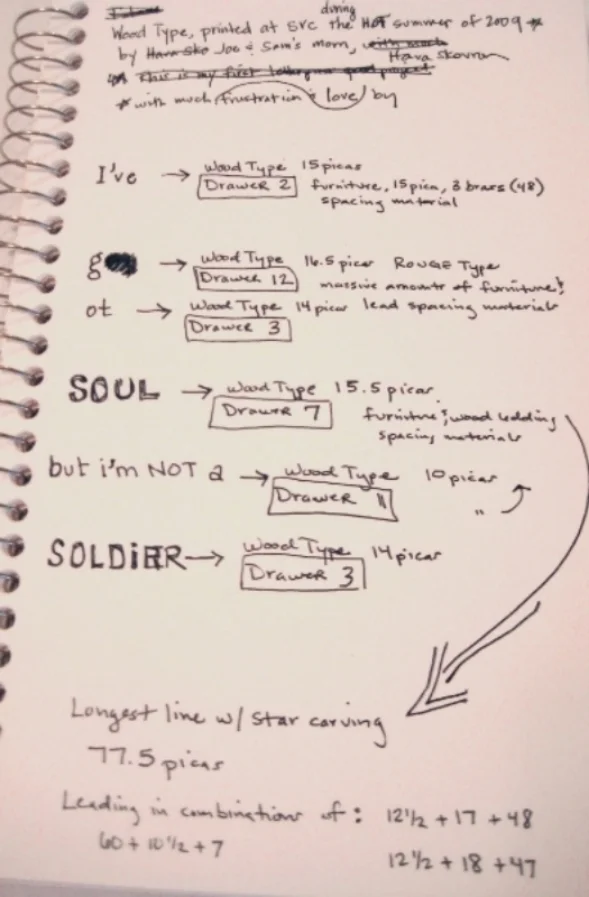 during
Wood Type, printed at SVC the HOT summer of 2009 *
by Hava Sko Joe & Sam's mom, with much
Hava Skovron
This is my first letterpress project
* with much frustration & love by
I've → Wood Type 15 picas
Drawer 2 furniture, 15 pica, 3 brass (48)
spacing material
g → Wood Type 16.5 picas ROUGE Type
Drawer 12 massive amounts of furniture!
ot → Wood Type 14 picas lead spacing materials
Drawer 3
SOUL → Wood Type 15.5 picas
Drawer 7 furniture, wood ledding
spacing materials
but i'm NOT a → Wood Type 10 picas
Drawer 11 "
SOLDiER → Wood Type 14 picas
Drawer 3
Longest line w/ star carving
77.5 picas
Leading in combinations of: 12 1/2 + 17 + 48
60 + 10 1/2 + 7
12 1/2 + 18 + 47